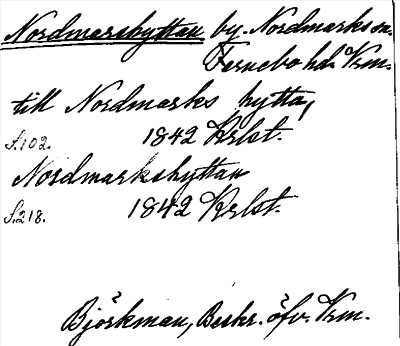 Nordmarshyttan by. Nordmarks sn.
Färnebo hd. Vrm.
till Nordmarks hytta,
S.102. 1842 Krlst.
Nordmarkshyttan
S.218. 1842 Krlst.
Björkman, Beskr. öfv. Vrm.